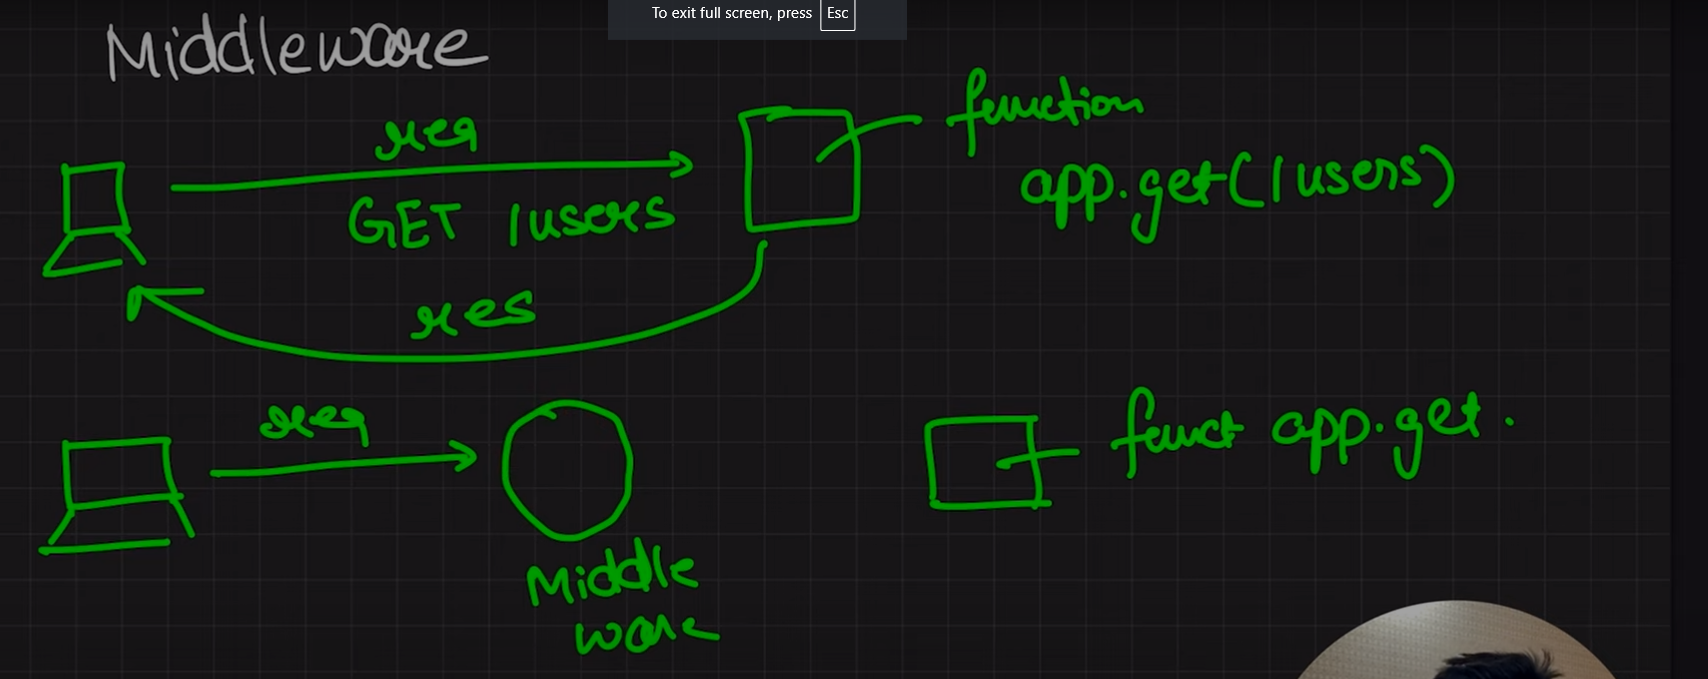 To exit full screen, press Esc
Middleware
req
GET /users
function
app.get(/users)
res
req
Middle
ware
funct app.get.